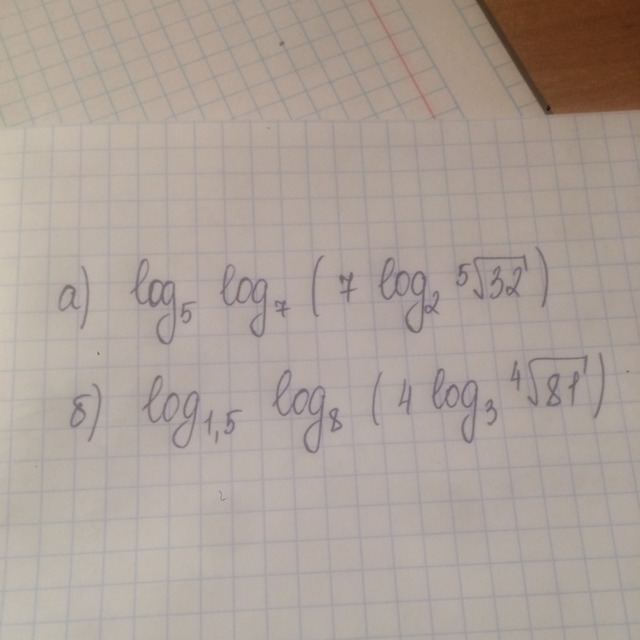 а) log₅ log₇ (7 log₂ ⁵√32)
б) log₁,₅ log₈ (4 log₃ ⁴√81)